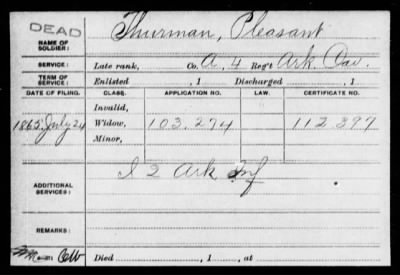 DEAD
NAME OF SOLDIER: Thurman, Pleasant
SERVICE: Late rank, Co. A, 4 Reg't Ark Cav.
TERM OF SERVICE: Enlisted , 1 Discharged , 1
DATE OF FILING. CLASS. APPLICATION NO. LAW. CERTIFICATE NO.
Invalid,
1865, July 24 Widow, 103.274 112.397
Minor,
ADDITIONAL SERVICES: I 2 Ark Inf
REMARKS:
Died , 1 , at